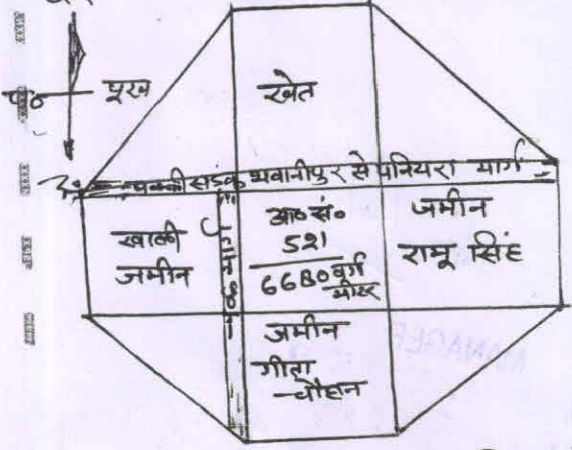 प०
पूरब
खेत
उ०
पक्की सड़क भवानीपुर से पनियरा मार्ग
खाली
जमीन
मार्ग
आ० सं०
521
6680 वर्ग
मीटर
जमीन
रामू सिंह
जमीन
गीता
चौहान
MANAGER